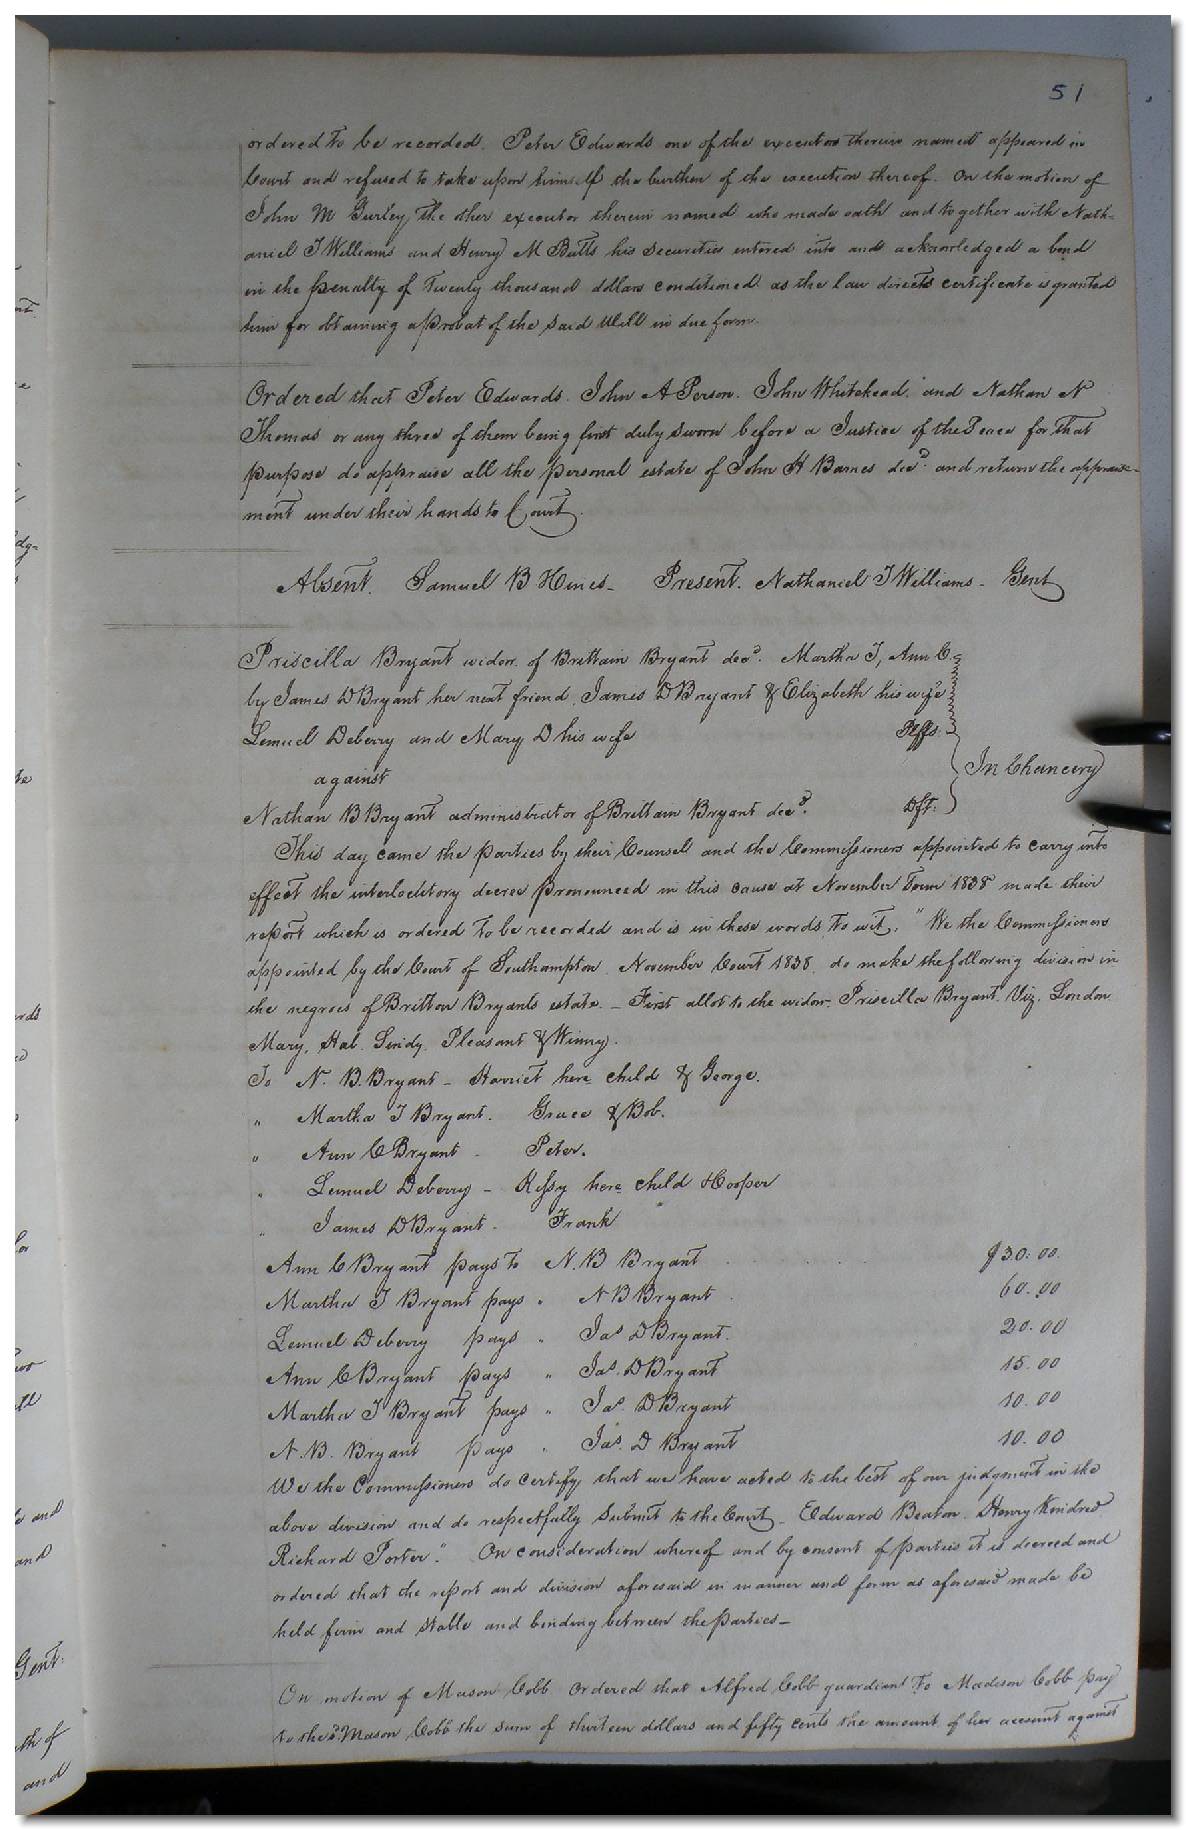 51
ordered to be recorded. Peter Edwards one of the executors therein named appeared in
Court and refused to take upon himself the burthen of the execution thereof. On the motion of
John M Gurley, the other executor therein named who made oath and together with Nath-
aniel T Williams and Henry M Butts his securities entered into and acknowledged a bond
in the penalty of Twenty thousand dollars conditioned as the law directs certificate is granted
him for obtaining a probat of the said Will in due form.
Ordered that Peter Edwards. John A Person. John Whitehead. and Nathan N
Thomas or any three of them being first duly sworn before a Justice of the Peace for that
purpose do appraise all the personal estate of John H Barnes decd. and return the appraise-
ment under their hands to Court.
Absent. Samuel B Hines - Present. Nathaniel T Williams - Gent
Priscilla Bryant widow of Brittain Bryant decd. Martha T, Ann C.
by James D Bryant her next friend, James D Bryant & Elizabeth his wife
Lemuel Deberry and Mary D his wife Plffs.
against
In Chancery
Nathan B Bryant administrator of Brittain Bryant decd. Dft.
This day came the parties by their Counsel and the Commissioners appointed to carry into
effect the interlocutory decree pronounced in this cause at November Term 1838 made their
report which is ordered to be recorded and is in these words, to wit, "We the Commissioners
appointed by the Court of Southampton November Court 1838, do make the following division in
the negroes of Britton Bryants estate. - First allot to the widow Priscilla Bryant. Viz. London
Mary, Hal. Lindy. Pleasant & Winny.
To N. B. Bryant - Harriet here child & George.
" Martha T Bryant. Grace & Bob.
" Ann C Bryant - Peter.
" Lemuel Deberry - Kissy here child Hooper
" James D Bryant - Frank
Ann C Bryant pays to N. B Bryant $30.00.
Martha T Bryant pays " N B Bryant 60.00
Lemuel Deberry pays " Jas D Bryant. 20.00
Ann C Bryant pays " Jas. D Bryant 15.00
Martha T Bryant pays " Jas. D Bryant 10.00
N. B. Bryant pays " Jas. D Bryant 10.00
We the Commissioners do certify that we have acted to the best of our judgment in the
above division and do respectfully submit to the Court - Edward Beaton. Henry Kindred
Richard Porter." On consideration whereof and by consent of parties it is decreed and
ordered that the report and division aforesaid in manner and form as aforesaid made be
held firm and stable and binding between the parties -
On motion of Mason Cobb Ordered that Alfred Cobb guardian to Madison Cobb pay
to the sd Mason Cobb the sum of thirteen dollars and fifty cents the amount of her account against